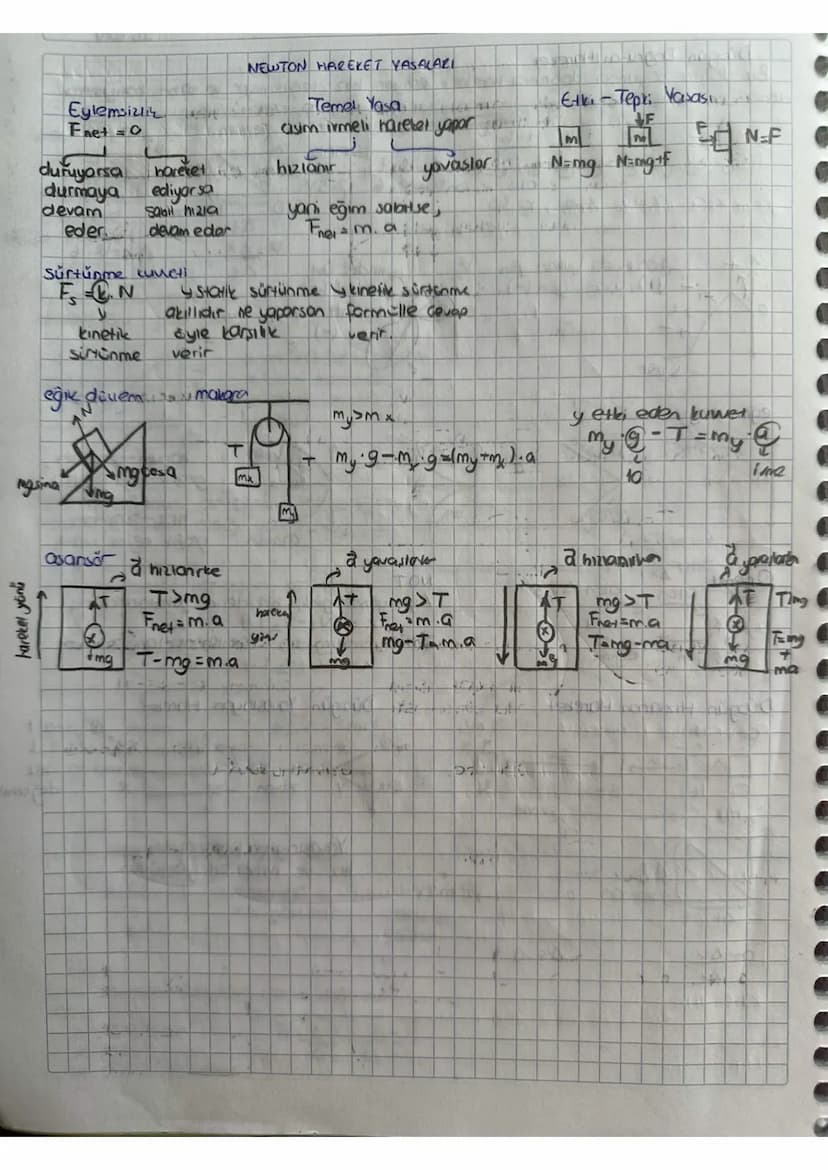 NEWTON HAREKET YASALARI
Eylemsizlik
Fnet = 0
duruyorsa
durmaya
devam
eder.
hareket
ediyorsa
sabit hızla
devam eder
Temel Yasa
cisim ivmeli hareket yapar
hızlanır
yavaşlar
yani eğim sabitse,
Fnet = m.a
Etki - Tepki Yasası
m
N=mg
F
m
N=mg+F
F
N=F
Sürtünme kuvveti
Fs = k. N
kinetik
sürtünme
statik sürtünme
akıllıdır ne yaparsan
öyle karşılık
verir
kinetik sürtünme
formülle cevap
verir.
eğik düzlem
N
mgsina
mg
mgcosa
makara
T
T
mx
my
my>mx
my.g-mx.g=(my+mx).a
y etki eden kuvvet
my.g - T = my.a
10
ivme
asansör
hareket yönü
a hızlanırke
T
mg
T>mg
Fnet=m.a
T-mg=m.a
hareket
yönü
a yavaşlarke
T
mg
mg>T
Fnet=m.a
mg-T=m.a
a hızlanırken
T
mg
mg>T
Fnet=m.a
T=mg-ma
a yavaşlarken
T
mg
T>mg
T=mg
+
ma